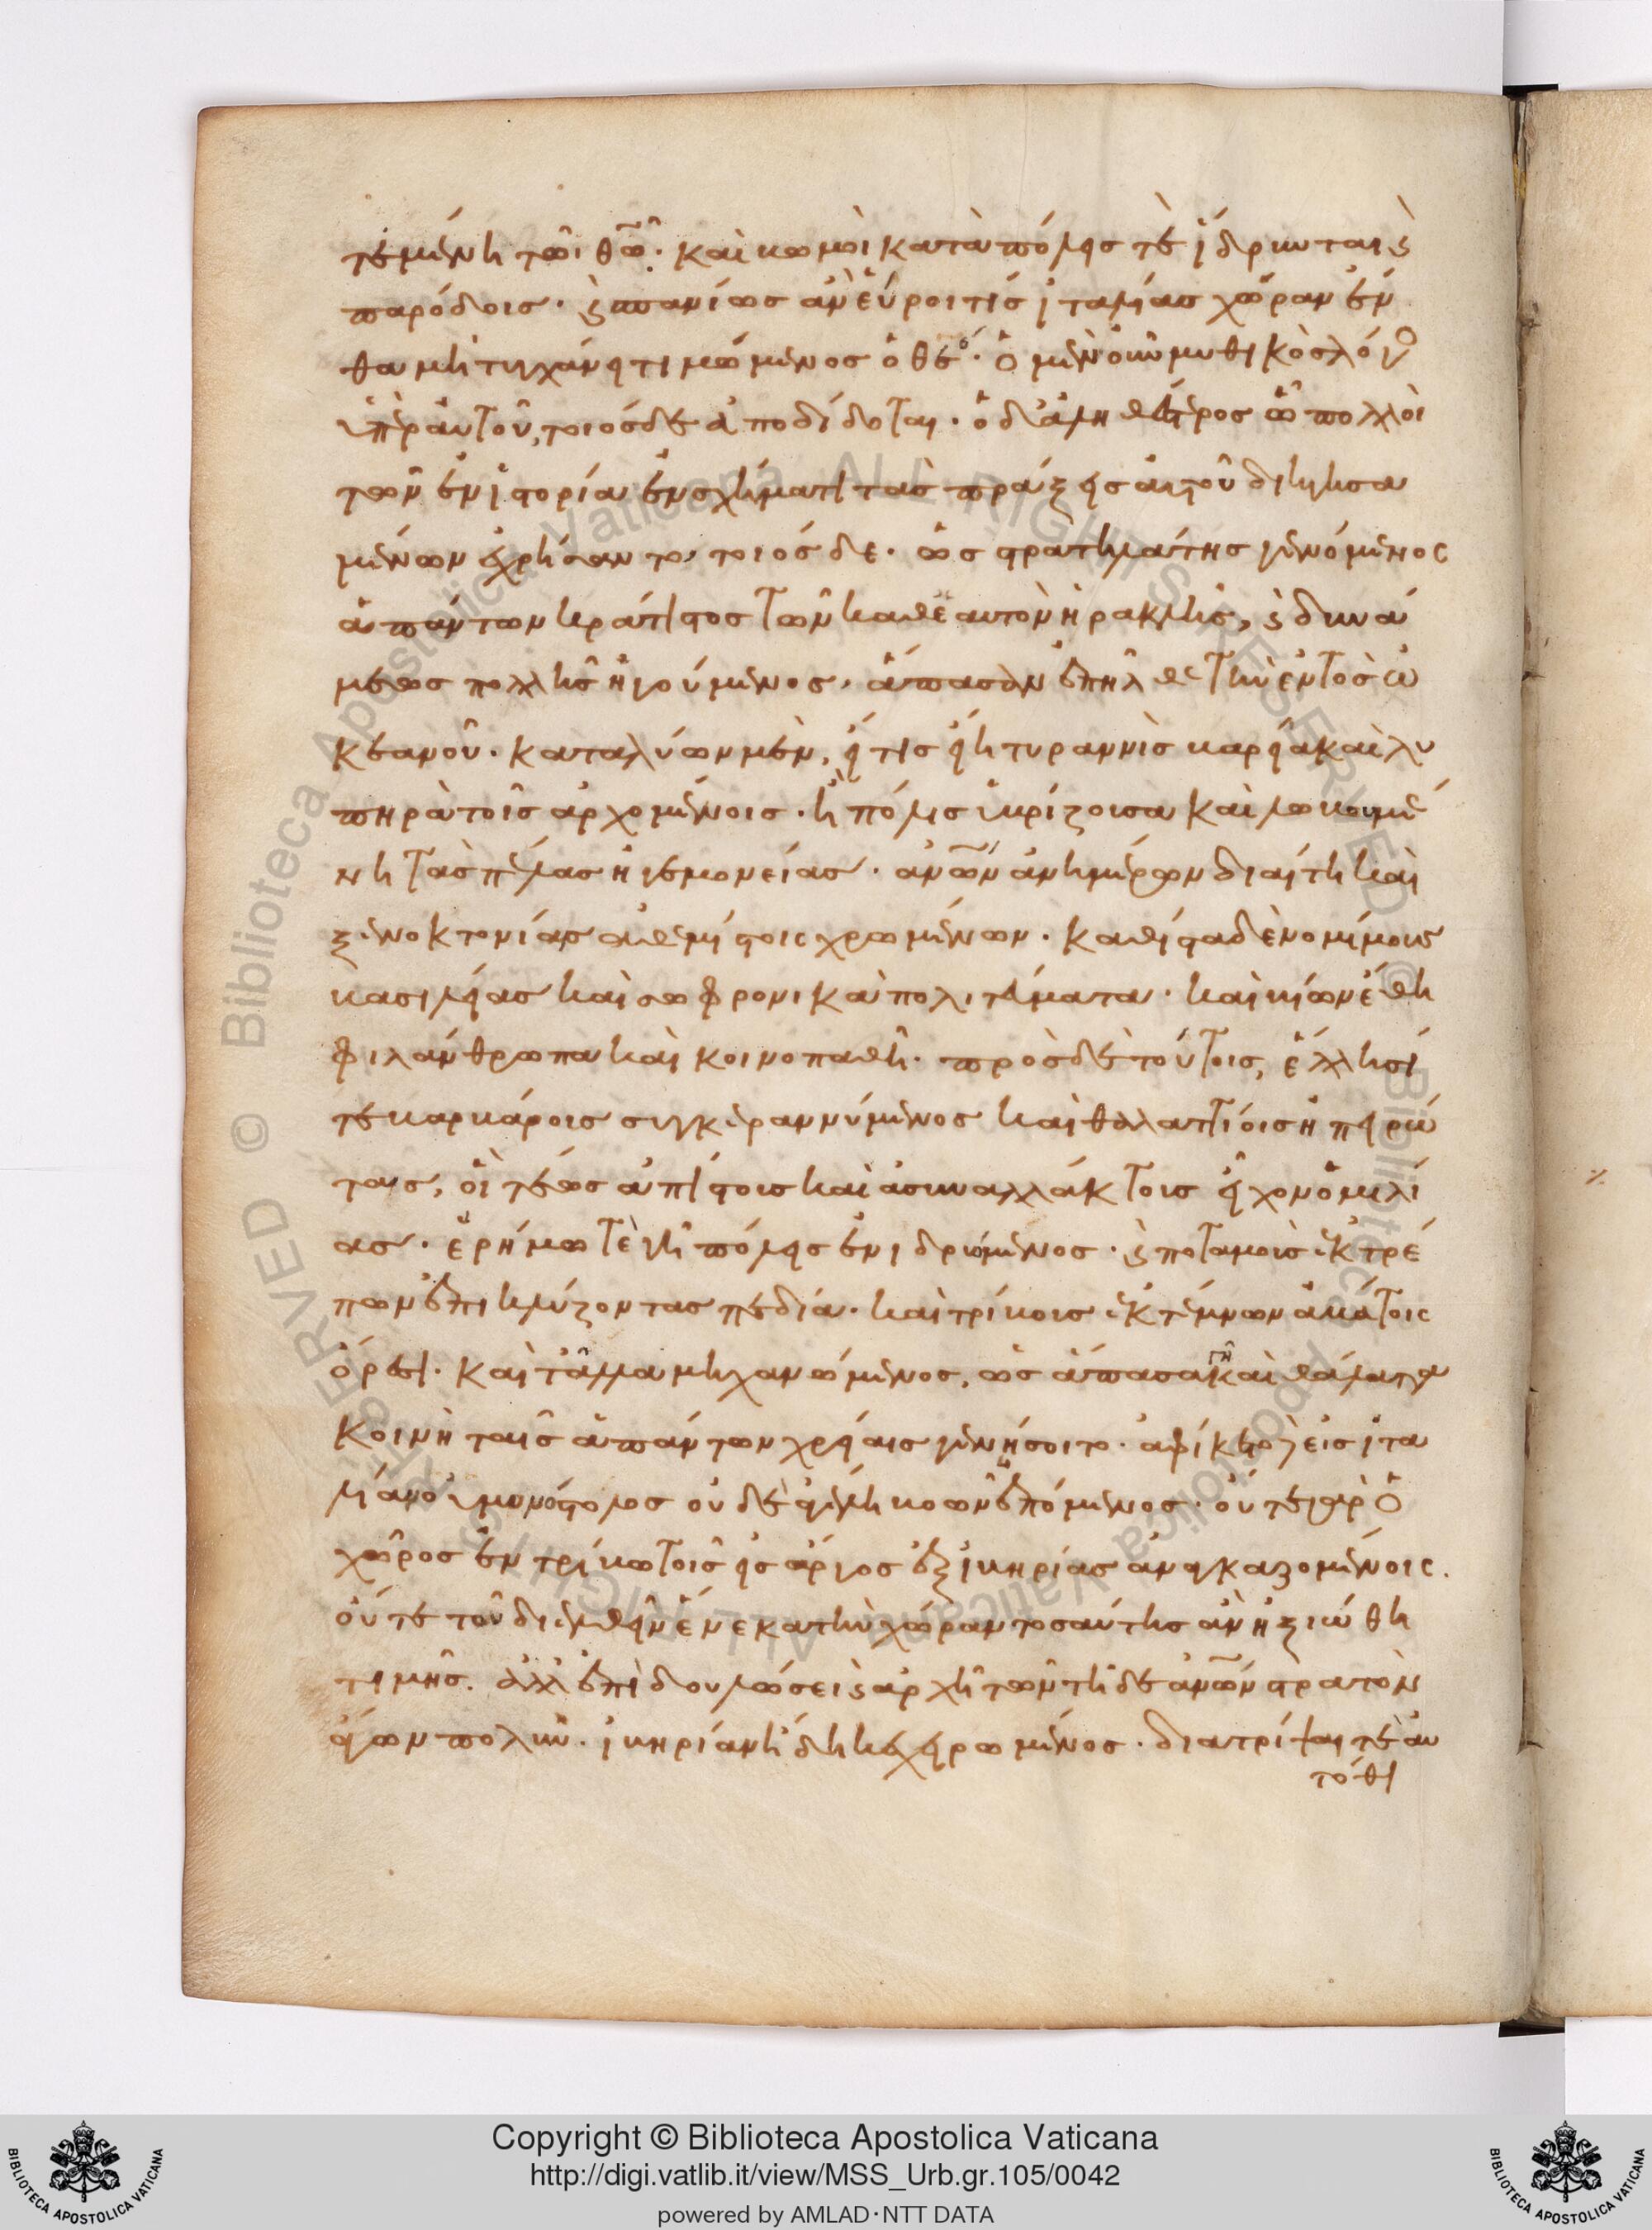 τεμένη τῶι θῶ. καὶ βωμοὶ κατὰ πόλεις τὲ ἵδρυνται ϛ
παρόδοις· ϛ σπανίως ἂν εὕροι τίς ἰταλίας χῶραν ἔν
θα μὴ τυγχάνει τιμώμενος ὁ θεός. ὁ μὲν οὖν μυθικὸς λόγος
ὑπὲρ αὐτοῦ, τοιόσδε ἀποδίδοται. ὁ δ' ἀληθέστερος ὧι πολλοὶ
τῶν ἐν ἱστορίαι ἐν σχήματι τὰς πράξεις αὐτοῦ διηγησα
μένων ἐχρήσαντο, τοιόσδε. ὡς στρατηλάτης γενόμενος
ἁπάντων κράτιστος τῶν καθ' ἑαυτὸν ἡρακλῆς, ϛ δυνά
μεως πολλῆς ἡγούμενος, ἅπασαν ἐπῆλθε τὴν ἐντὸς ὠ
κεανοῦ. καταλύων μὲν, εἴ τις εἴη τυραννὶς βαρεῖα καὶ λυ
πηρὰ τοῖς ἀρχομένοις. ἢ πόλις ὑβρίζουσα καὶ λωβωμέ
νη τὰς πέλας ἡγεμονείας. ἀνῶν ἀνημέρων διαίτη καὶ
ξενοκτονίας ἀθεμίστοις χρωμένων. καθιστὰς δὲ νομίμους
βασιλείας καὶ σωφρονικὰ πολιτεύματα. καὶ βίων ἔθη
φιλάνθρωπα καὶ κοινοπαθῆ. πρὸς δὲ τούτοις, ἕλλησί
τε βαρβάροις συγκεραννύμενος καὶ θαλαττίοις ἠπειρώ
τας, οἳ τέως ἀπίστους καὶ ἀσυναλλάκτους εἶχον ὁμιλί
ας. ἐρήμω τὲ γῆ πόλεις ἐνιδρυόμενος. ϛ ποταμοὺς ἐκτρέ
πων ἐπικλύζοντας πεδία. καὶ τρίβους ἐκτέμνων ἀβάτοις
ὄρεσι. καὶ τἆλλα μηχανώμενος, ὡς ἅπασα γῆ καὶ θάλαττα
κοινὴ ταῖς ἁπάντων χρείαις γενήσοιτο. ἀφίκετο δ' εἰς ἰτα
λίαν οὐ μονόστολος οὐδὲ ἀγέλη βοῶν ἐπόμενος. οὔτε γὰρ ὁ
χῶρος ἐν τρίβω τοῖς εἰς ἄργος ἐξ ἰβηρίας ἀνακαζομένοις.
οὔτε τοῦ διελθεῖν ἕνεκα τὴν χώραν τοσαύτης ἂν ἠξιώθη
τιμῆς. ἀλλ' ἐπὶ δουλώσει ϛ ἀρχῆ τῶν τῆδε ἀνῶν στρατὸν
ἄγων πολὺν. ἰβηρίαν ἤδη κεχειρωμένος. διατρίψαι τε αὐ
τόθι